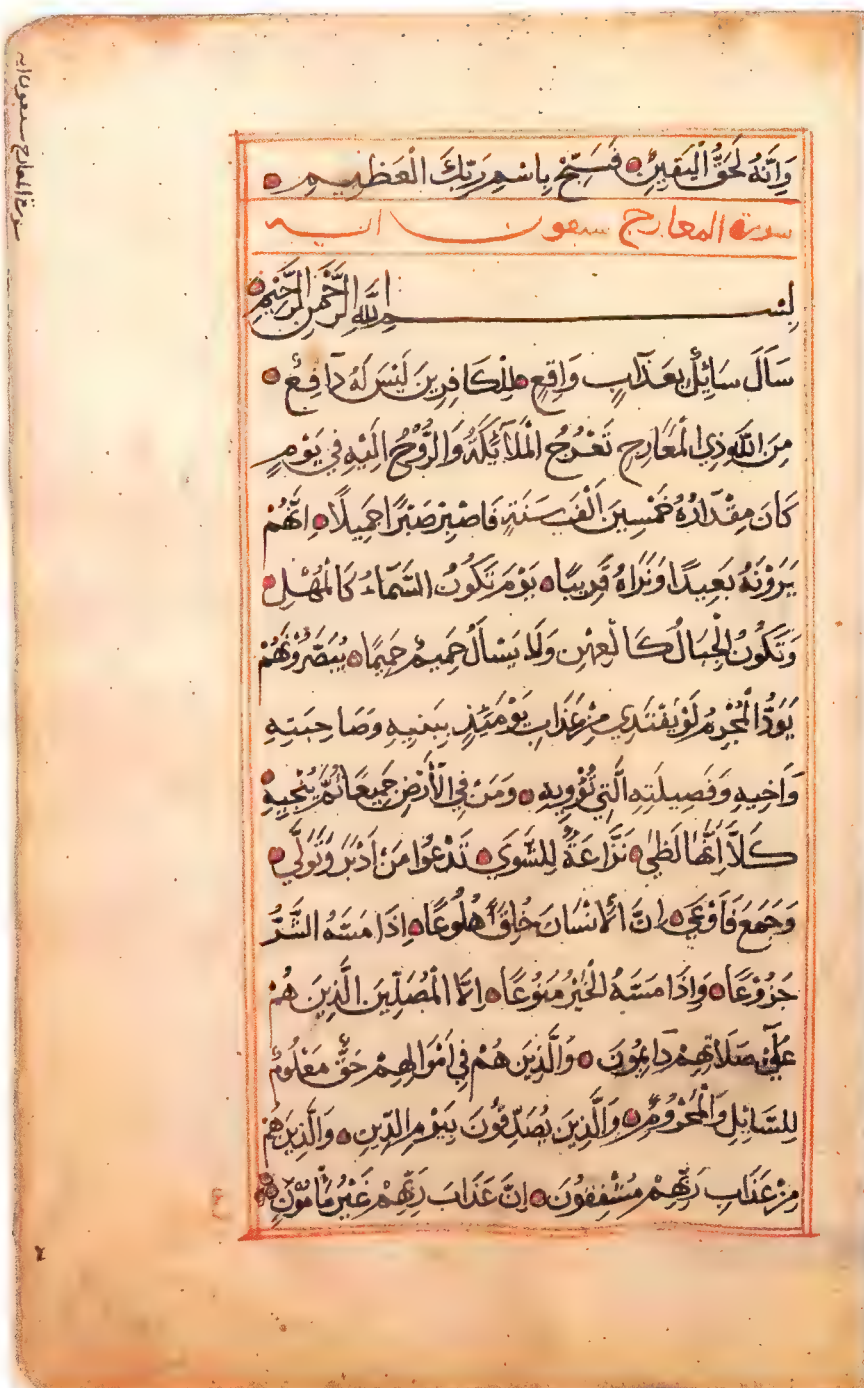 وَاِنَّهُ لَحَقُّ الْيَقِيْنِ فَسَبِّحْ بِاسْمِ رَبِّكَ الْعَظِيْمِ
سورة المعارج سبعون اية
بِسْمِ اللَّهِ الرَّحْمَنِ الرَّحِيْمِ
سَاَلَ سَائِلٌ بِعَذَابٍ وَاقِعٍ لِلْكَافِرِيْنَ لَيْسَ لَهُ دَافِعٌ
مِنَ اللَّهِ ذِي الْمَعَارِجِ تَعْرُجُ الْمَلَآئِكَةُ وَالرُّوْحُ اِلَيْهِ فِي يَوْمٍ
كَانَ مِقْدَارُهُ خَمْسِيْنَ اَلْفَ سَنَةٍ فَاصْبِرْ صَبْرًا جَمِيْلًا اِنَّهُمْ
يَرَوْنَهُ بَعِيْدًا وَنَرَاهُ قَرِيْبًا يَوْمَ تَكُوْنُ السَّمَاءُ كَالْمُهْلِ
وَتَكُوْنُ الْجِبَالُ كَالْعِهْنِ وَلَا يَسْاَلُ حَمِيْمٌ حَمِيْمًا يُبَصَّرُوْنَهُمْ
يَوَدُّ الْمُجْرِمُ لَوْ يَفْتَدِي مِنْ عَذَابِ يَوْمَئِذٍ بِبَنِيْهِ وَصَاحِبَتِهِ
وَاَخِيْهِ وَفَصِيْلَتِهِ الَّتِي تُؤْوِيْهِ وَمَنْ فِي الْاَرْضِ جَمِيْعًا ثُمَّ يُنْجِيْهِ
كَلَّا اِنَّهَا لَظَى نَزَّاعَةً لِلشَّوَى تَدْعُوا مَنْ اَدْبَرَ وَتَوَلَّى
وَجَمَعَ فَاَوْعَى اِنَّ الْاِنْسَانَ خُلِقَ هَلُوْعًا اِذَا مَسَّهُ الشَّرُّ
جَزُوْعًا وَاِذَا مَسَّهُ الْخَيْرُ مَنُوْعًا اِلَّا الْمُصَلِّيْنَ الَّذِيْنَ هُمْ
عَلَى صَلَاتِهِمْ دَائِمُوْنَ وَالَّذِيْنَ هُمْ فِي اَمْوَالِهِمْ حَقٌّ مَعْلُوْمٌ
لِلسَّائِلِ وَالْمَحْرُوْمِ وَالَّذِيْنَ يُصَدِّقُوْنَ بِيَوْمِ الدِّيْنِ وَالَّذِيْنَ هُمْ
مِنْ عَذَابِ رَبِّهِمْ مُشْفِقُوْنَ اِنَّ عَذَابَ رَبِّهِمْ غَيْرُ مَأْمُوْنٍ
ع
سورة المعارج سبعون اية